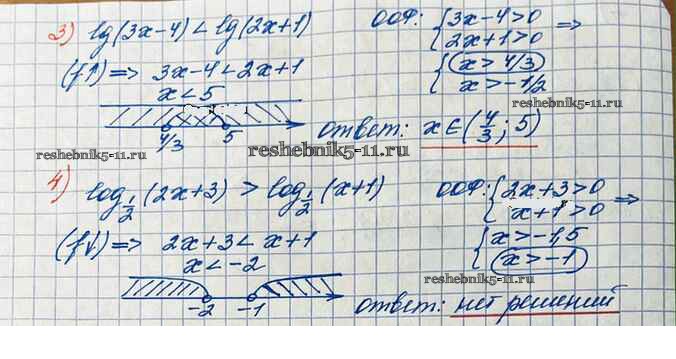 3) lg(3x-4) < lg(2x+1) ООФ: { 3x-4>0 =>
2x+1>0
(f↑) => 3x-4 < 2x+1 { x > 4/3
x < 5 x > -1/2
reshebnik5-11.ru
4/3 5 ответ: x∈(4/3; 5)
reshebnik5-11.ru reshebnik5-11.ru
4) log₁/₂(2x+3) > log₁/₂(x+1) ООФ: { 2x+3>0 =>
x+1>0
(f↓) => 2x+3 < x+1 { x>-1,5
x < -2 x>-1
reshebnik5-11.ru
-2 -1 ответ: нет решений